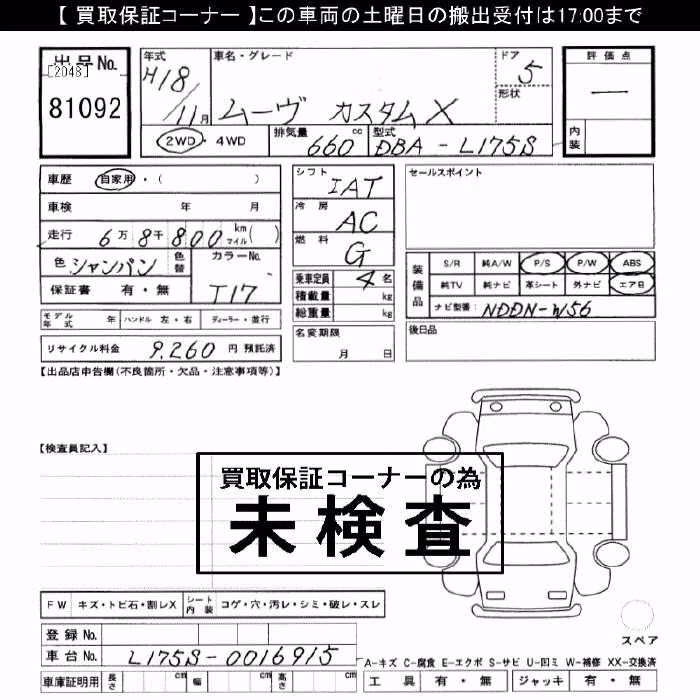 【 買取保証コーナー 】この車両の土曜日の搬出受付は17:00まで
出品No.
[2048]
81092
年式 H18/11月
車名・グレード
ムーヴ カスタムX
ドア 5
形状
評価点
一
内装
2WD・4WD
排気量 660cc
型式 DBA-L175S
車歴 自家用・( )
車検 年 月
走行 6万8千800 km マイル( )
色 シャンパン
色替
カラーNo. T17
保証書 有・無
シフト IAT
冷房 AC
燃料 G
乗車定員 4名
積載量 kg
総重量 kg
名変期限 月 日
セールスポイント
装備品
S/R 純A/W P/S P/W ABS
純TV 純ナビ 革シート 外ナビ エアB
ナビ型番: NDDN-W56
後日品
モデル年式 年 ハンドル 左・右 ディーラー・並行
リサイクル料金 9,260 円 預託済
【出品店申告欄(不良箇所・欠品・注意事項等)】
【検査員記入】
買取保証コーナーの為
未検査
FW キズ・トビ石・割レX シート内装 コゲ・穴・汚レ・シミ・破レ・スレ
スペア
登録No.
車台No. L175S-0016915
車庫証明用 長さ cm 幅 cm 高さ cm
A-キズ C-腐食 E-エクボ S-サビ U-凹ミ W-補修 XX-交換済
工具 有・無 ジャッキ 有・無